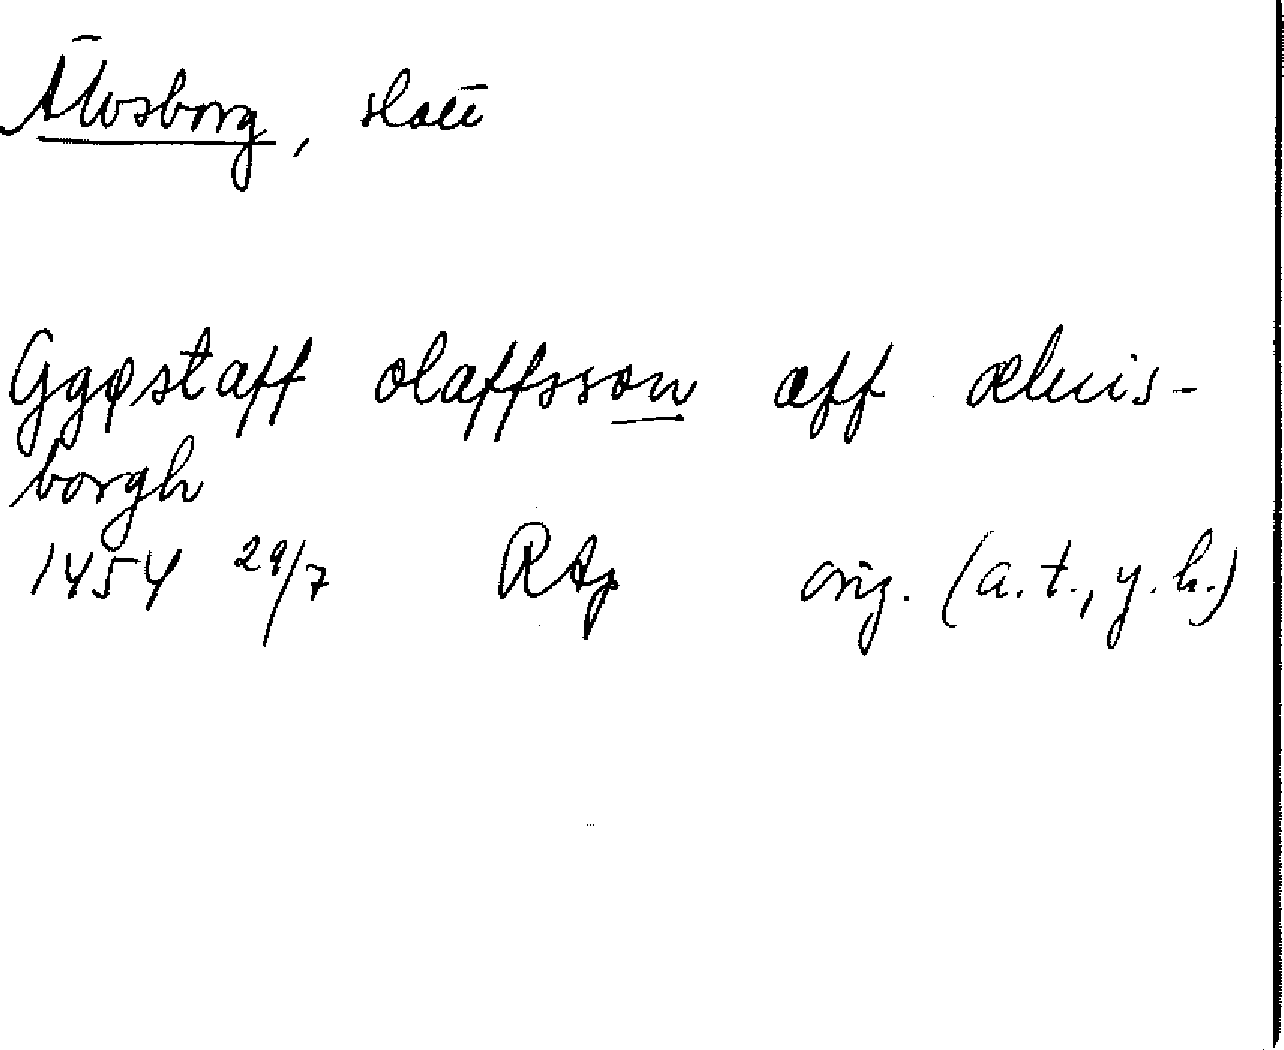 Älvsborg, slott
Ggøstaff olaffsson aff æluis-
borgh
1454 29/7 RAp orig. (a.t., y.h.)